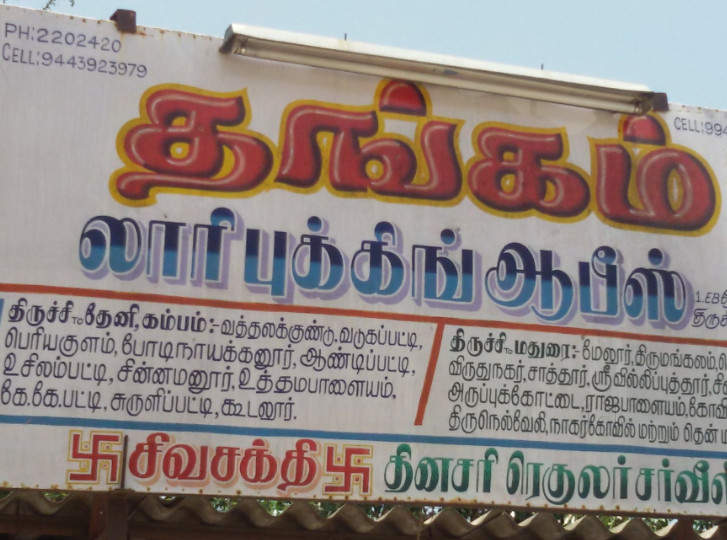 PH:2202420
CELL:9443923979
CELL:994
தங்கம்
லாரி புக்கிங் ஆபீஸ்
1.EB
திருச்சி TO தேனி, கம்பம்:- வத்தலக்குண்டு, வடுகப்பட்டி,
பெரியகுளம், போடிநாயக்கனூர், ஆண்டிப்பட்டி,
உசிலம்பட்டி, சின்னமனூர், உத்தமபாளையம்,
கே.கே.பட்டி, சுருளிப்பட்டி, கூடலூர்.
திருச்சி TO மதுரை:- மேலூர், திருமங்கலம்,
விருதுநகர், சாத்தூர், ஸ்ரீவில்லிப்புத்தூர்,
அருப்புக்கோட்டை, ராஜபாளையம்,
திருநெல்வேலி, நாகர்கோவில் மற்றும் தென்
卐 சிவசக்தி 卐 தினசரி ரெகுலர் சர்வீஸ்